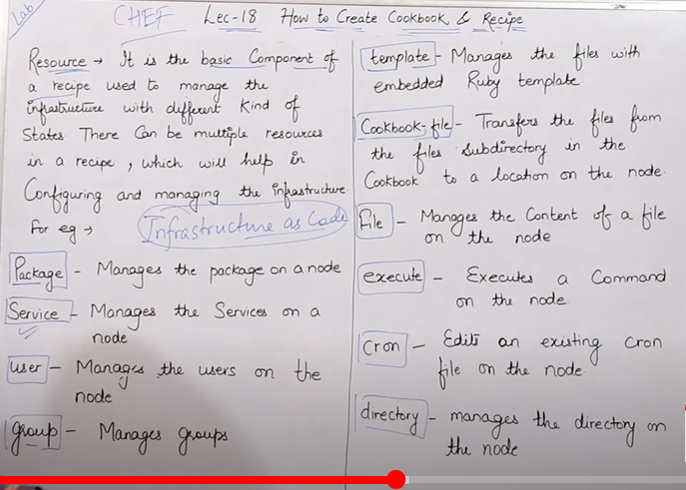 Lab
CHEF Lec-18 How to Create Cookbook & Recipe
Resource → It is the basic Component of
a recipe used to manage the
infrastructure with different Kind of
States There Can be multiple resources
in a recipe, which will help in
Configuring and managing the infrastructure
For eg →
Infrastructure as Code
Package - Manages the package on a node
Service - Manages the Services on a
node
user - Manages the users on the
node
group - Manages groups
template - Manages the files with
embedded Ruby template.
Cookbook-file - Transfers the files from
the files subdirectory in the
Cookbook to a location on the node.
File - Manages the Content of a file
on the node
execute - Executes a Command
on the node.
Cron - Edits an existing Cron
file on the node
directory - manages the directory on
the node